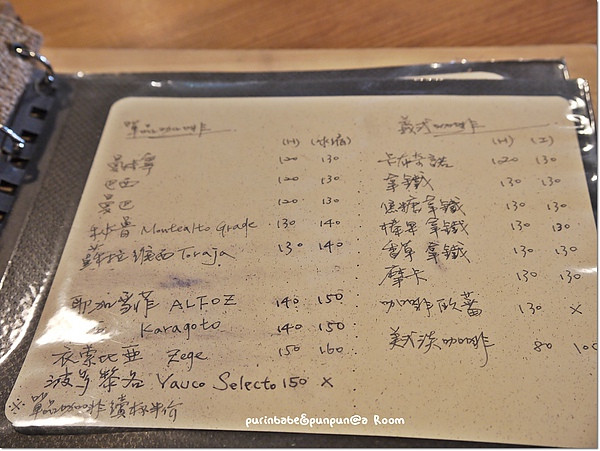 單品咖啡
(H) (冰滴)
曼特寧 120 130
巴西 120 130
曼巴 120 130
Montealto Grade 130 140
蘇拉維西 Toraja 130 140
耶加雪菲 ALTOZ 140 150
Karagoto 140 150
衣索比亞 Zege 150 160
波多黎各 Yauco Selecto 150 X
※單品咖啡續杯半價
義式咖啡
(H) (I)
卡布奇諾 120 130
拿鐵 130 130
焦糖拿鐵 130 130
榛果拿鐵 130 130
香草拿鐵 130 130
摩卡 130 130
咖啡歐蕾 130 X
美式淡咖啡 80 100
purinbabe&punpun@a Room